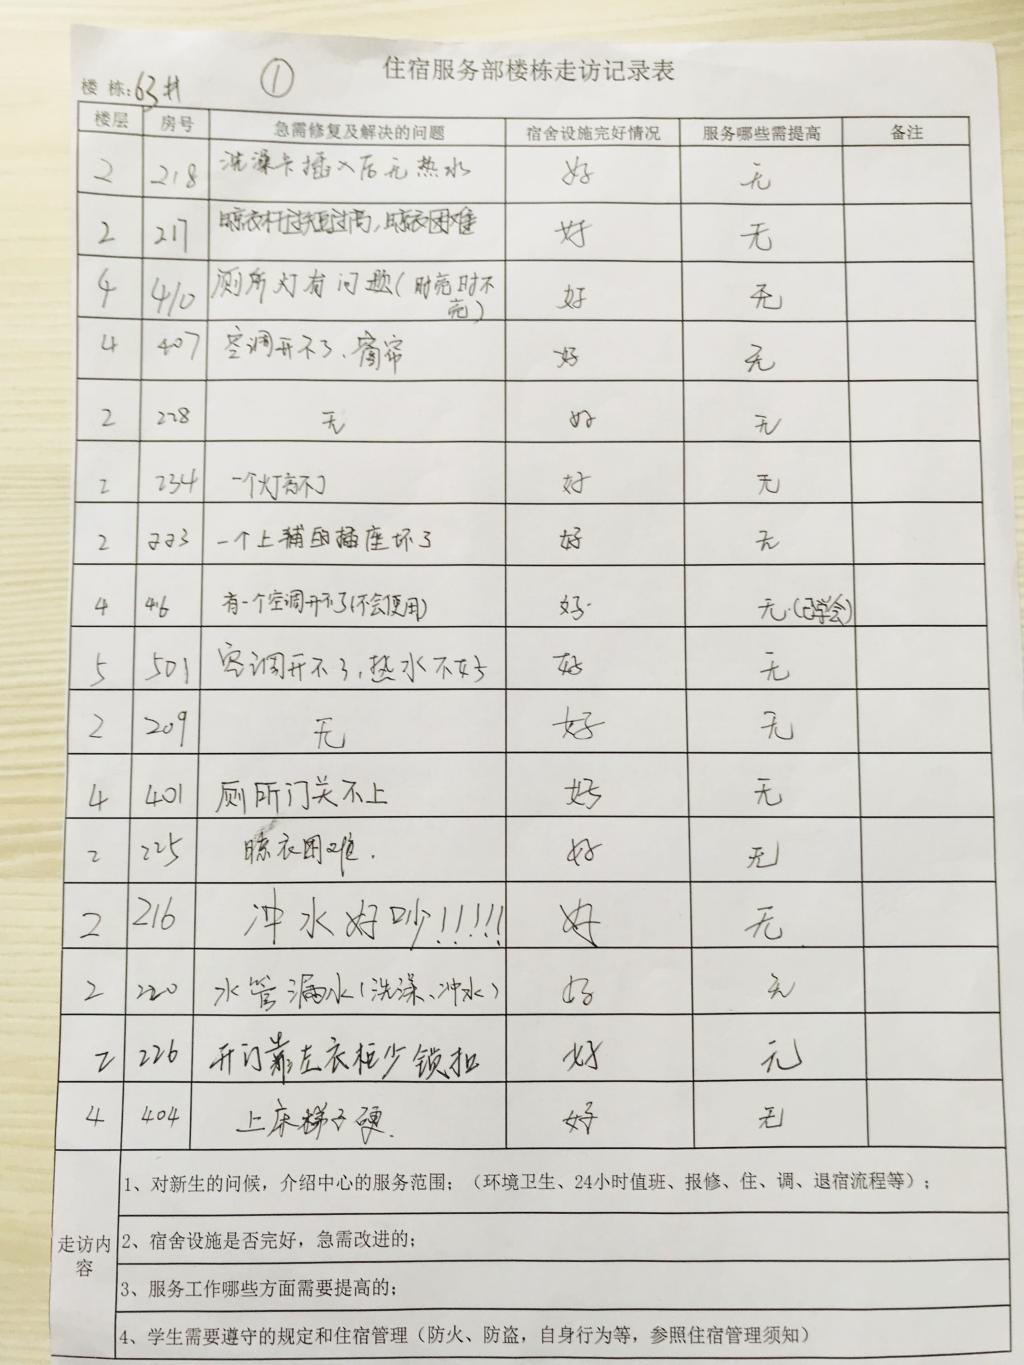 住宿服务部楼栋走访记录表
楼 栋:63# ①
楼层 房号 急需修复及解决的问题 宿舍设施完好情况 服务哪些需提高 备注
2 218 洗澡卡插入后无热水 好 无
2 217 晾衣杆过短过高,晾衣困难 好 无
4 410 厕所灯有问题(时亮时不
亮) 好 无
4 407 空调开不了、窗帘 好 无
2 228 无 好 无
2 234 一个灯 好 无
2 223 一个上铺的插座坏了 好 无
4 416 有一个空调开不了(不会使用) 好. 无.(已学会)
5 501 空调开不了,热水不好 好 无
2 209 无 好 无
4 401 厕所门关不上 好 无
2 225 晾衣困难. 好 无
2 216 冲水好吵!!!!! 好 无
2 220 水管漏水(洗澡、冲水) 好 无
2 226 开门靠左衣柜少锁扣 好 无
4 404 上床梯子硬. 好 无
走访内容
1、对新生的问候，介绍中心的服务范围；（环境卫生、24小时值班、报修、住、调、退宿流程等）；
2、宿舍设施是否完好，急需改进的；
3、服务工作哪些方面需要提高的；
4、学生需要遵守的规定和住宿管理（防火、防盗，自身行为等，参照住宿管理须知）